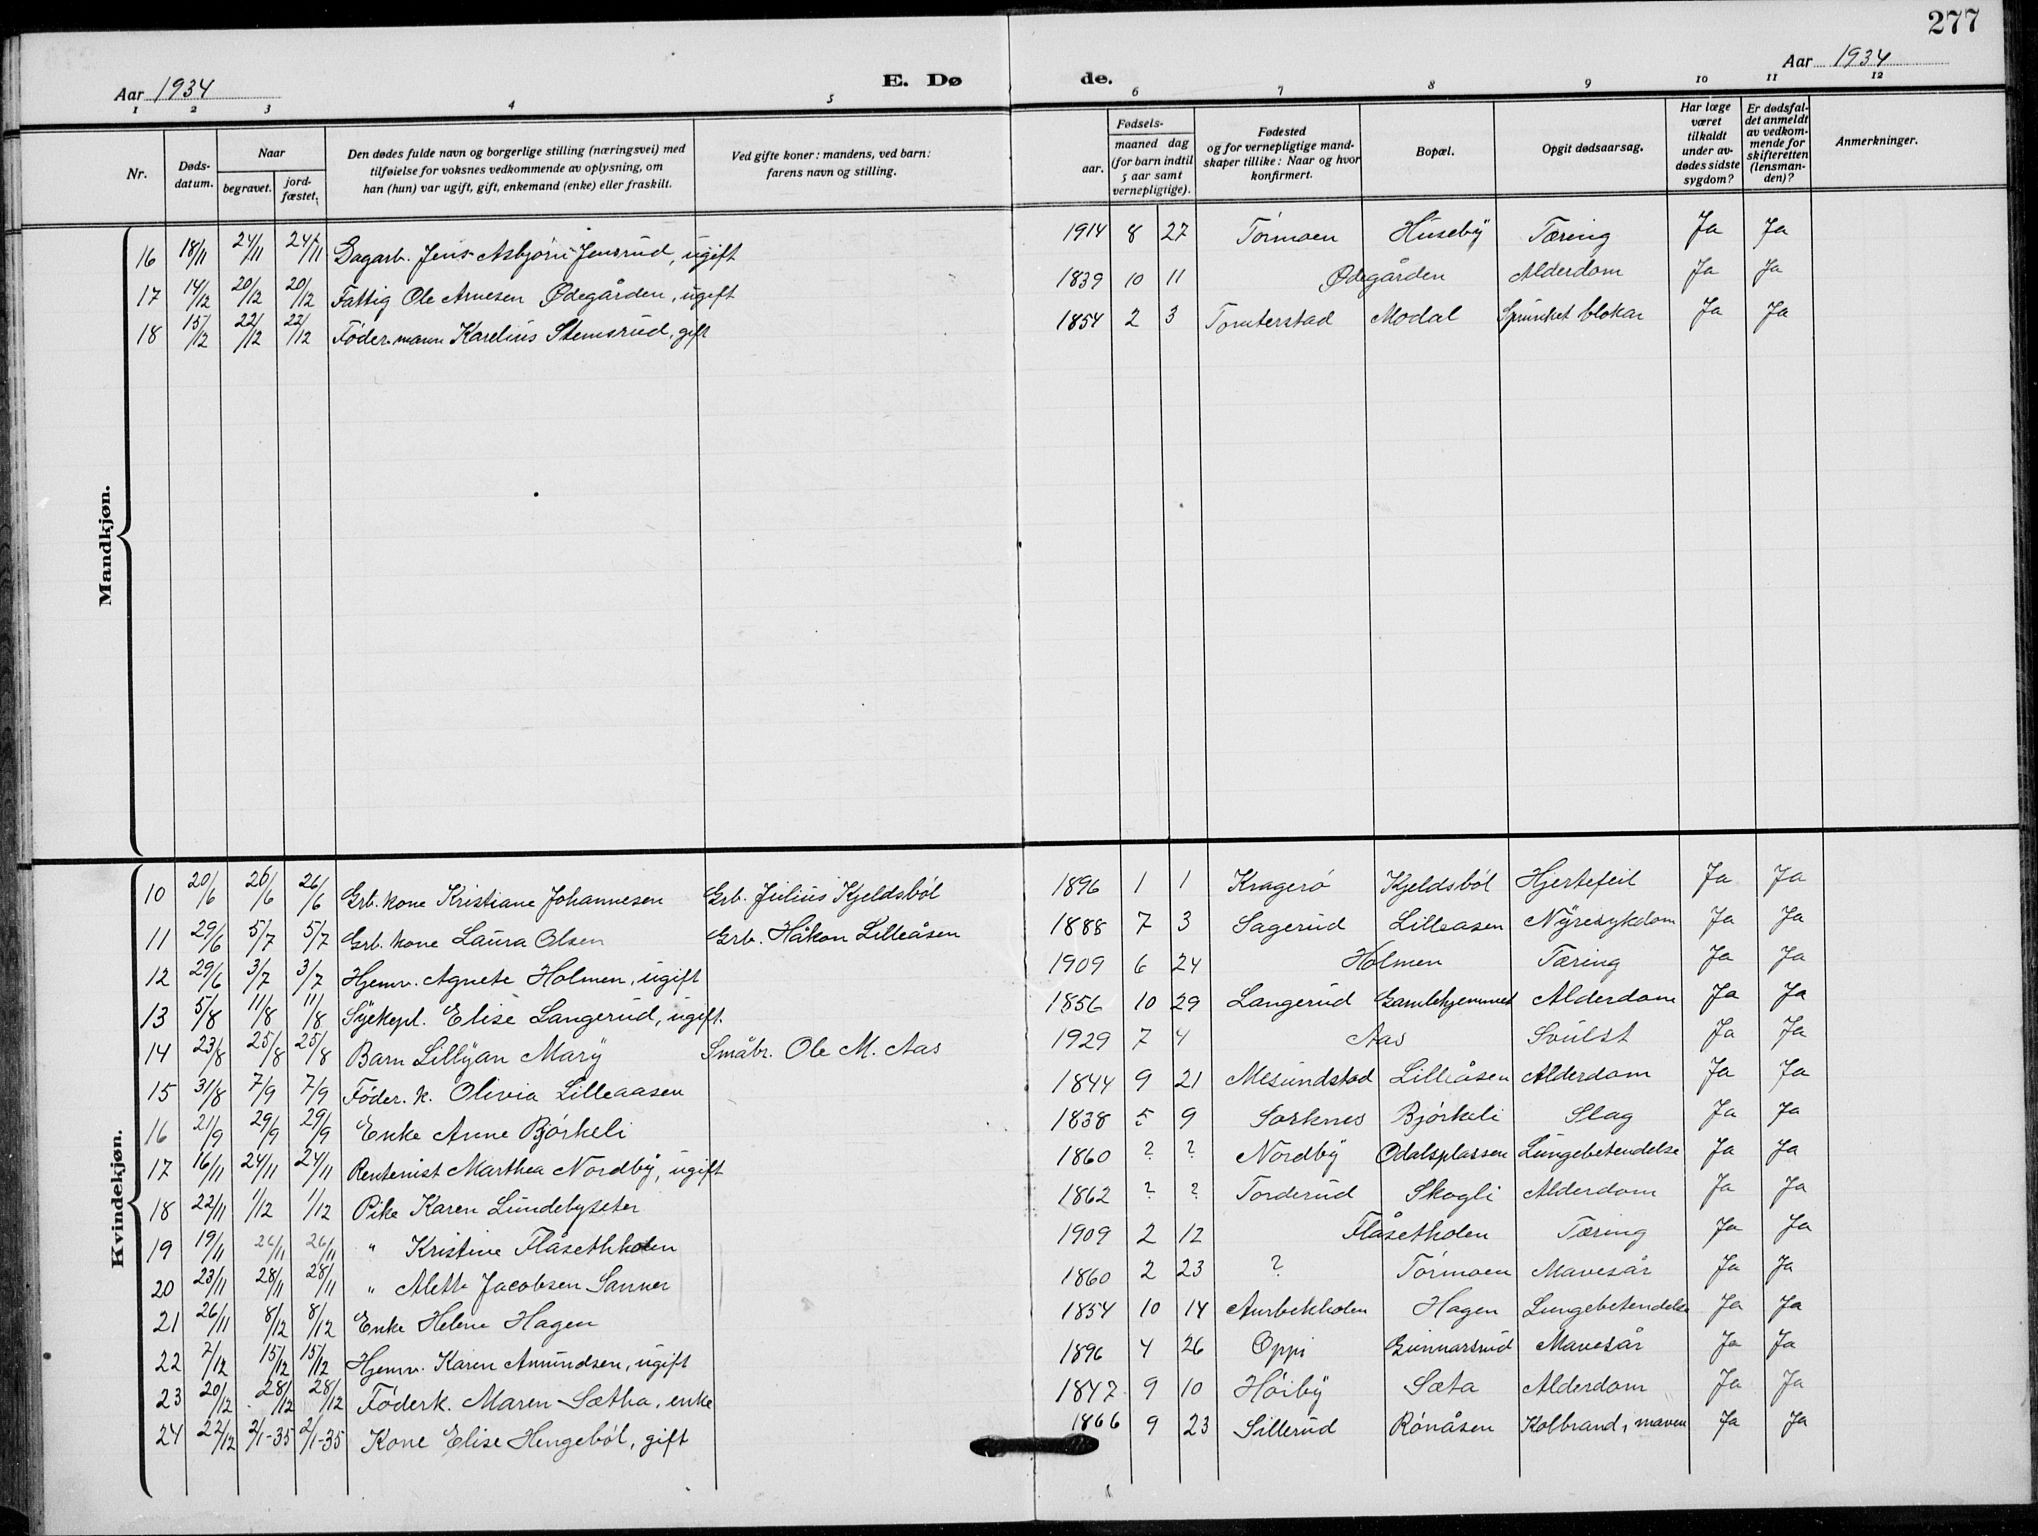 277
Aar 1934
E. Dø de.
Aar 1934
1 2 3 4 5 6 7 8 9 10 11 12
Nr.
Døds-datum.
Naar
begravet.
jord-fæstet.
Den dødes fulde navn og borgerlige stilling (næringsvei) med
tilføielse for voksnes vedkommende av oplysning, om
han (hun) var ugift, gift, enkemand (enke) eller fraskilt.
Ved gifte koner: mandens, ved barn:
farens navn og stilling.
Fødsels-
aar.
maaned dag
(for barn indtil
5 aar samt
vernepligtige).
Fødested
og for vernepligtige mand-
skaper tillike: Naar og hvor
konfirmert.
Bopæl.
Opgit dødsaarsag.
Har læge
været
tilkaldt
under av-
dødes sidste
sygdom?
Er dødsfal-
det anmeldt
av vedkom-
mende for
skifteretten
(lensman-
den)?
Anmerkninger.
Mandkjøn.
16 18/11 24/11 24/11 Dagarb. Jens Asbjørn Jensrud, ugift 1914 8 27 Tormoen Huseby Tæring Ja Ja
17 14/12 20/12 20/12 Fattig Ole Arnesen Ødegården, ugift 1839 10 11 Ødegården Alderdom Ja Ja
18 15/12 22/12 22/12 Föder.mann Karelius Stemsrud, gift 1854 2 3 Tomterstad Modal Sprunket blokar Ja Ja
Kvindekjøn.
10 20/6 26/6 26/6 Grb. kone Kristiane Johannesen Grb. Julius Kjeldsból 1896 1 1 Kragerö Kjeldsból Hjertefeil Ja Ja
11 29/6 5/7 5/7 Grb. kone Laura Olsen Grb. Håkon Lilleåsen 1888 7 3 Sagerud Lilleasen Nyresykdom Ja Ja
12 29/6 3/7 3/7 Hjemv. Agnete Holmen, ugift 1909 6 24 Holmen Tæring Ja Ja
13 5/8 11/8 11/8 Sykepl. Elise Langerud, ugift. 1856 10 29 Langerud Gamlehjemmet Alderdom Ja Ja
14 23/8 25/8 25/8 Barn Lillyan Mary Småbr. Ole M. Aas 1929 7 4 Aas Svulst Ja Ja
15 31/8 7/9 7/9 Föder. k. Olivia Lilleaasen 1844 9 21 Mesundstad Lilleåsen Alderdom Ja Ja
16 21/9 29/9 29/9 Enke Anne Björkeli 1838 5 9 Sorknes Bjórkeli Slag Ja Ja
17 16/11 24/11 24/11 Rentenist Marthea Nordby, ugift 1860 ? ? Nordby Odalsplassen Lungebetendelse Ja Ja
18 22/11 1/12 1/12 Pike Karen Lundebyseter 1862 ? ? Torderud Skogli Alderdom Ja Ja
19 19/11 26/11 26/11 " Kristine Flåsethholen 1909 2 12 Flåsetholen Tæring Ja Ja
20 23/11 28/11 28/11 " Alette Jacobsen Sanner 1860 2 23 ? Tormoen Mavesår Ja Ja
21 26/11 8/12 8/12 Enke Helene Hagen 1854 10 14 Aurbekholen Hagen Lungebetendelse Ja Ja
22 7/12 15/12 15/12 Hjemv. Karen Amundsen, ugift 1896 4 26 Oppi Gunnarsrud Mavesår Ja Ja
23 20/12 28/12 28/12 Föderk. Maren Sætha, enke 1847 9 10 Höiby Sæta Alderdom Ja Ja
24 22/12 2/1-35 2/1-35 Kone Elise Hengeból, gift 1866 9 23 Sillerud Rönåsen Kolbrand i maven Ja Ja